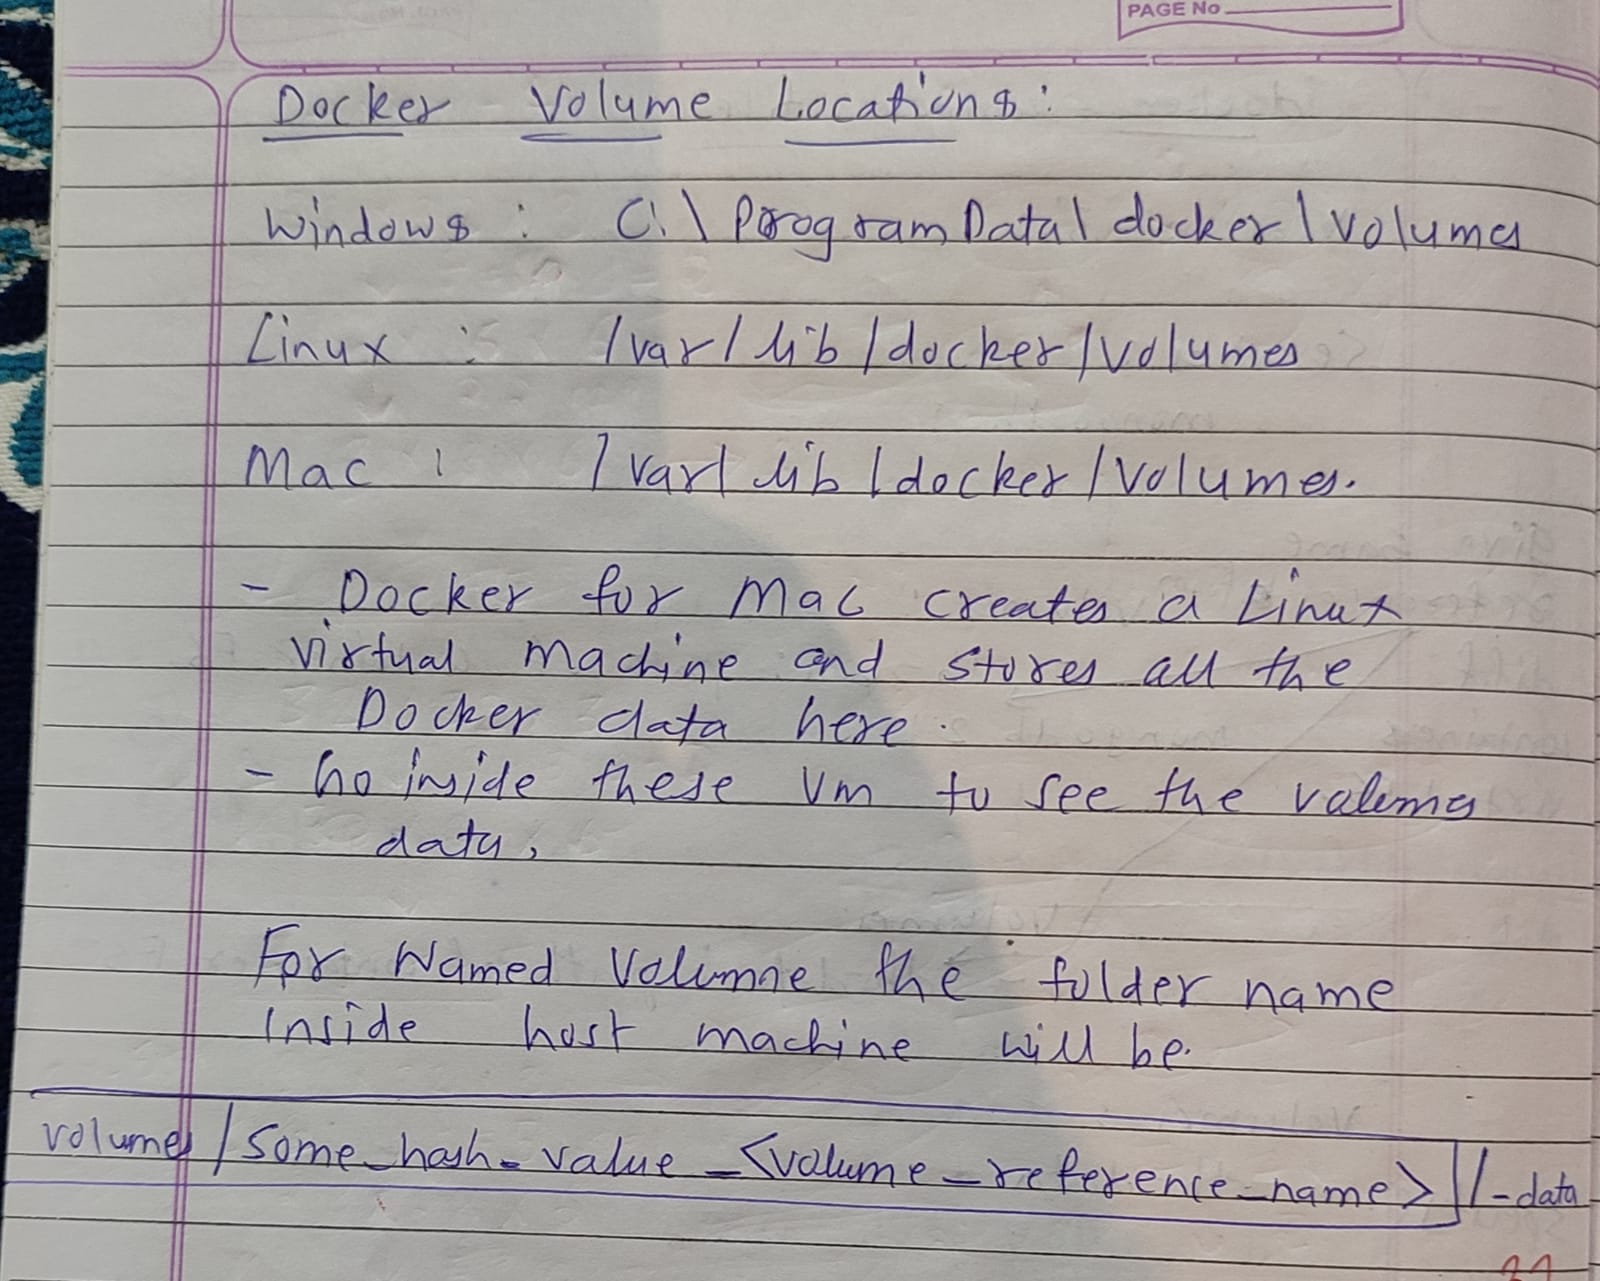 PAGE No
Docker Volume Locations:
Windows : C:\ProgramData\docker\volumes
Linux : /var/lib/docker/volumes
Mac : /var/lib/docker/volumes.
- Docker for Mac creates a Linux
virtual machine and stores all the
Docker data here.
- Go inside these Vm to see the volumes
data,
For Named Volumne the folder name
inside host machine will be.
volumes/some_hash_value_<volume_reference_name>/-data